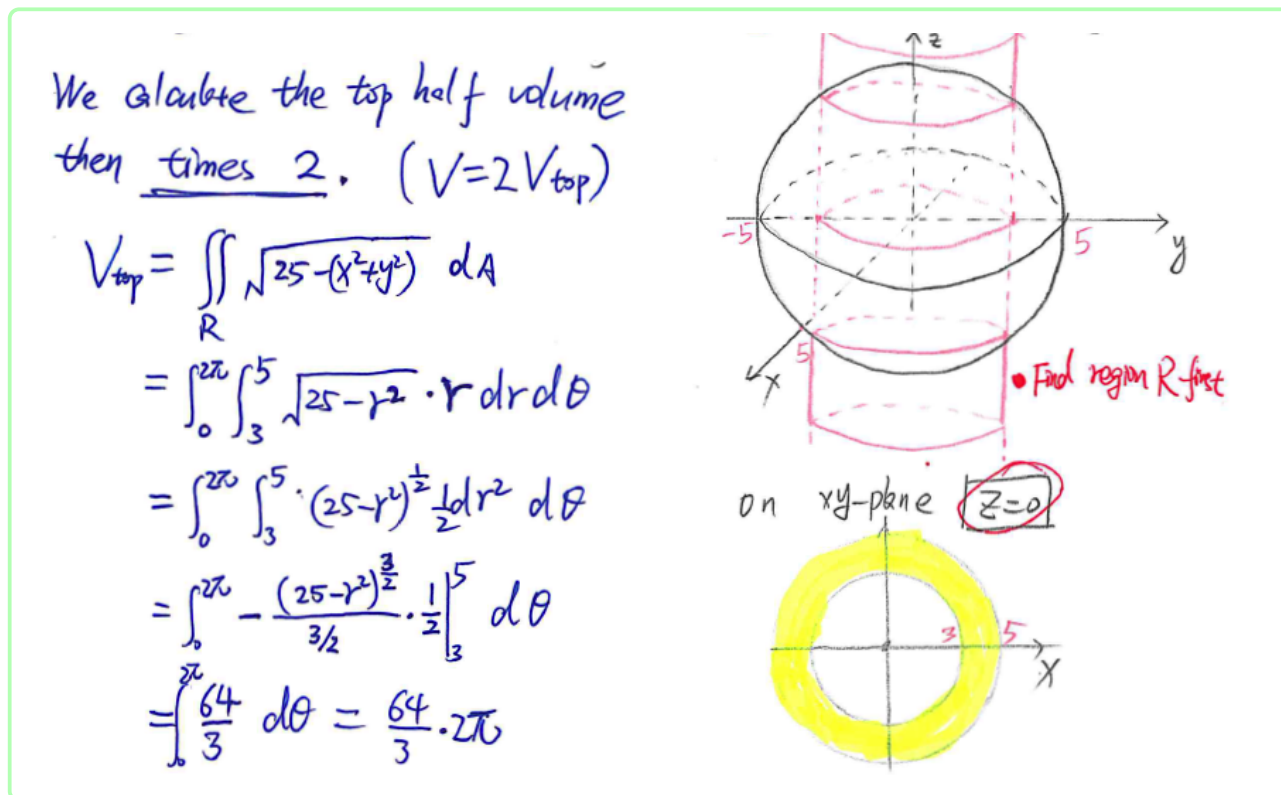 We calculate the top half volume
then times 2. (V=2V_top)
V_top = ∬_R √(25-(x²+y²)) dA
= ∫_0^{2π} ∫_3^5 √(25-r²) · r dr dθ
= ∫_0^{2π} ∫_3^5 · (25-r²)^{1/2} 1/2 dr² dθ
= ∫_0^{2π} - (25-r²)^{3/2}/(3/2) · 1/2 |_3^5 dθ
= ∫_0^{2π} 64/3 dθ = 64/3 · 2π
z
-5
5
y
5
x
• Find region R first
on xy-plane z=0
3
5
x